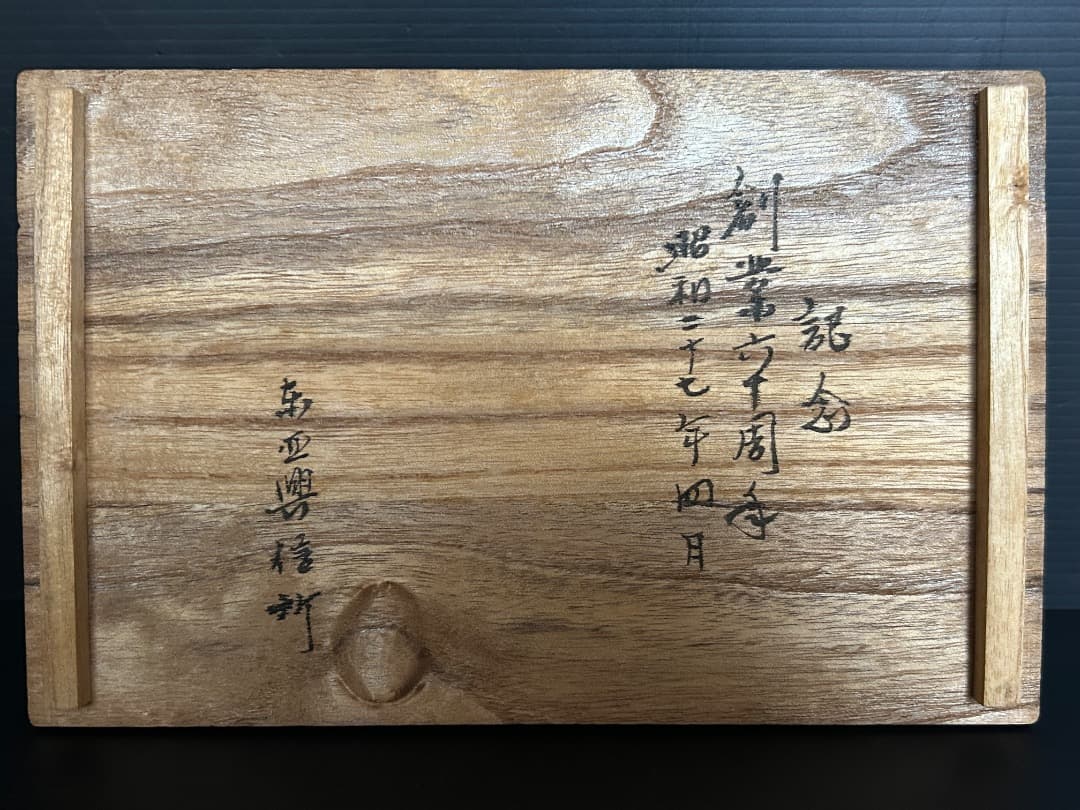 記念
創業六十周年
昭和二十七年四月
東亜興信所